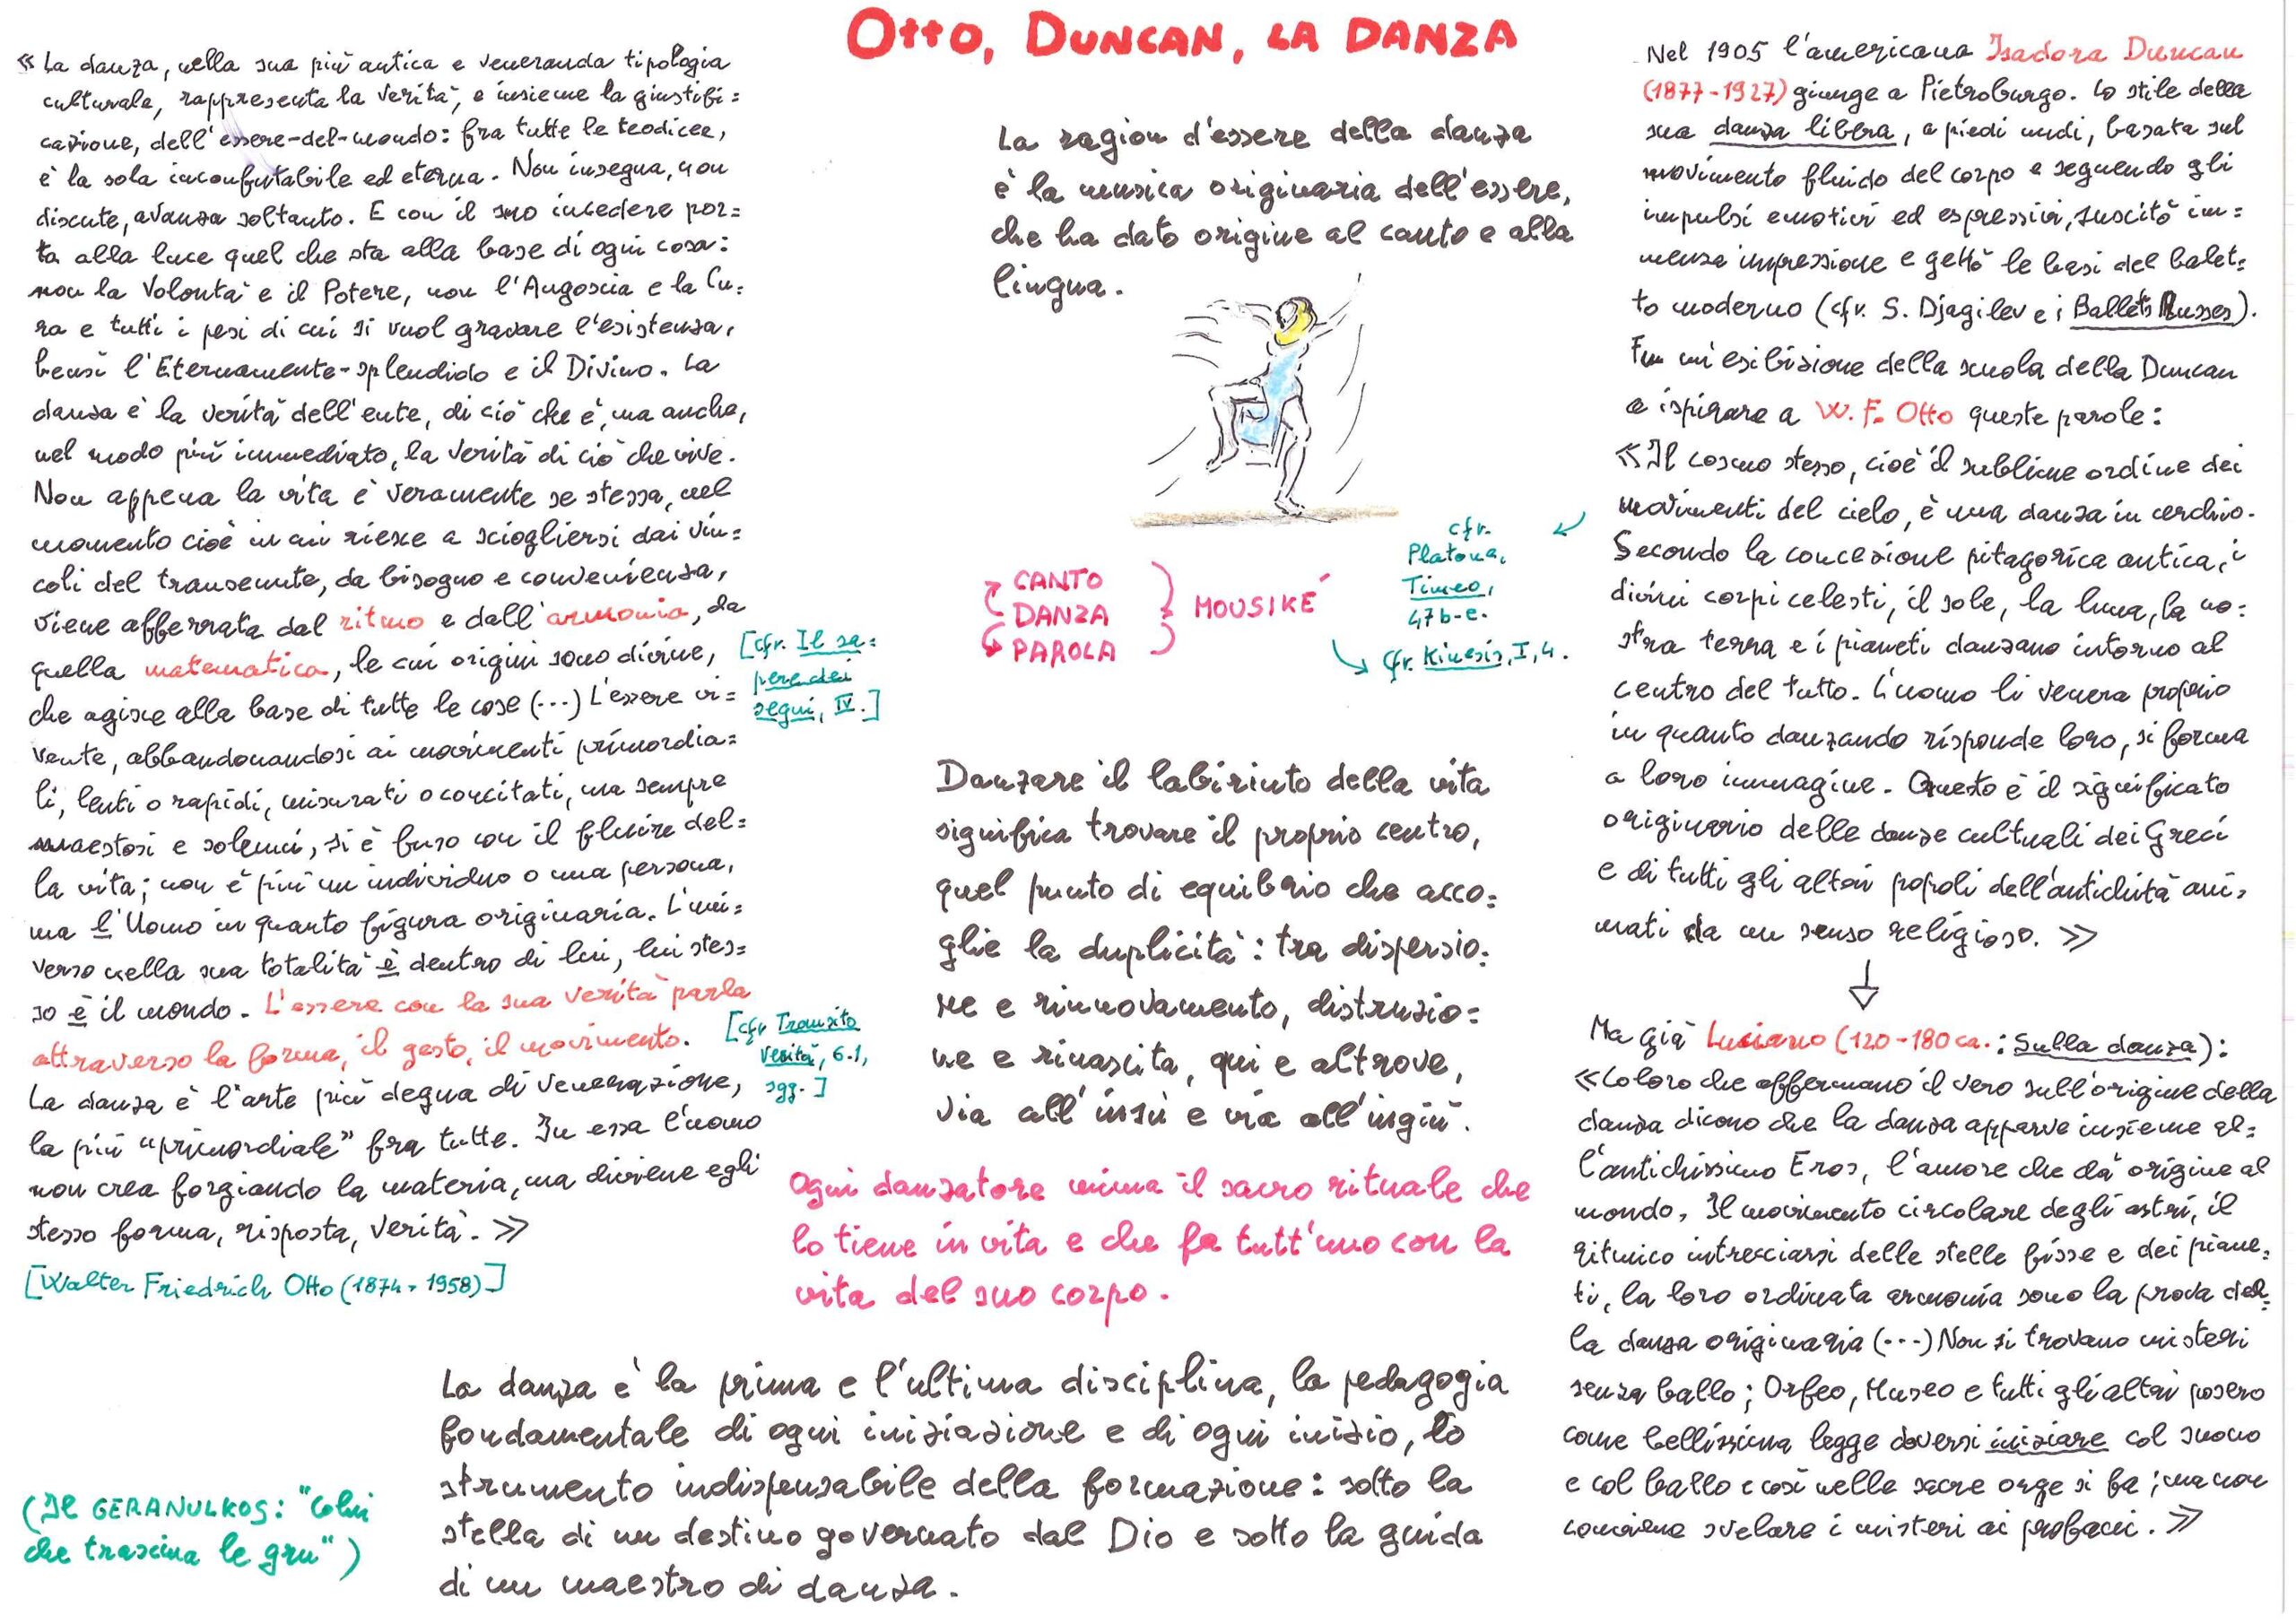 OTTO, DUNCAN, LA DANZA
« La danza, nella sua più antica e veneranda tipologia
culturale, rappresenta la verità, e insieme la giustifi=
cazione, dell'essere-del-mondo: fra tutte le teodicee,
è la sola inconfutabile ed eterna. Non insegna, non
discute, avanza soltanto. E con il suo incedere por=
ta alla luce quel che sta alla base di ogni cosa:
non la Volontà e il Potere, non l'Angoscia e la Cu=
ra e tutti i pesi di cui si vuol gravare l'esistenza,
bensì l'Eternamente-splendido e il Divino. La
danza è la verità dell'ente, di ciò che è, ma anche,
nel modo più immediato, la verità di ciò che vive.
Non appena la vita è veramente se stessa, nel
momento cioè in cui riesce a sciogliersi dai vin=
coli del transeunte, da bisogno e convenienza,
viene afferrata dal ritmo e dall'armonia, da
quella matematica, le cui origini sono divine,
che agisce alla base di tutte le cose (...) L'essere vi=
vente, abbandonandosi ai movimenti primordia=
li, lenti o rapidi, misurati o concitati, ma sempre
maestosi e solenni, si è fuso con il fluire del=
la vita; non è più un individuo o una persona,
ma l'Uomo in quanto figura originaria. L'uni=
verso nella sua totalità è dentro di lui, lui stes=
so è il mondo. L'essere con la sua verità parla
attraverso la forma, il gesto, il movimento.
La danza è l'arte più degna di venerazione,
la più "primordiale" fra tutte. In essa l'uomo
non crea forgiando la materia, ma diviene egli
stesso forma, risposta, verità. »
[Walter Friedrich Otto (1874-1958)]
[cfr. Il sa=
pere dei
segni, IV.]
[cfr Transito
Verità, 6.1,
sgg.]
(Il GERANULKOS: "colui
che trascina le gru")
La ragion d'essere della danza
è la musica originaria dell'essere,
che ha dato origine al canto e alla
lingua.
CANTO
DANZA
PAROLA
MOUSIKÉ
cfr.
Platone,
Timeo,
47b-e.
cfr. Kinesis, I, 4.
Danzare il labirinto della vita
significa trovare il proprio centro,
quel punto di equilibrio che acco=
glie la duplicità: tra dispersio=
ne e rinnovamento, distruzio=
ne e rinascita, qui e altrove,
via all'insù e via all'ingiù.
Ogni danzatore mima il sacro rituale che
lo tiene in vita e che fa tutt'uno con la
vita del suo corpo.
La danza è la prima e l'ultima disciplina, la pedagogia
fondamentale di ogni iniziazione e di ogni inizio, lo
strumento indispensabile della formazione: sotto la
stella di un destino governato dal Dio e sotto la guida
di un maestro di danza.
Nel 1905 l'americana Isadora Duncan
(1877-1927) giunge a Pietroburgo. Lo stile della
sua danza libera, a piedi nudi, basata sul
movimento fluido del corpo e seguendo gli
impulsi emotivi ed espressivi, suscitò im=
mensa impressione e gettò le basi del balet=
to moderno (cfr. S. Djagilev e i Ballets Russes).
Fu un'esibizione della scuola della Duncan
a ispirare a W. F. Otto queste parole:
«Il cosmo stesso, cioè il sublime ordine dei
movimenti del cielo, è una danza in cerchio.
Secondo la concezione pitagorica antica, i
divini corpi celesti, il sole, la luna, la no=
stra terra e i pianeti danzano intorno al
centro del tutto. L'uomo li venera proprio
in quanto danzando risponde loro, si forma
a loro immagine. Questo è il significato
originario delle danze cultuali dei Greci
e di tutti gli altri popoli dell'antichità ani=
mati da un senso religioso. »
Ma già Luciano (120-180 ca.: Sulla danza):
«Coloro che affermano il vero sull'origine della
danza dicono che la danza apparve insieme al=
l'antichissimo Eros, l'amore che dà origine al
mondo. Il movimento circolare degli astri, il
ritmico intrecciarsi delle stelle fisse e dei piane=
ti, la loro ordinata armonia sono la prova del=
la danza originaria (...) Non si trovano misteri
senza ballo; Orfeo, Museo e tutti gli altri posero
come bellissima legge doversi iniziare col suono
e col ballo e così nelle sacre orge si fa; ma non
conviene svelare i misteri ai profani. »